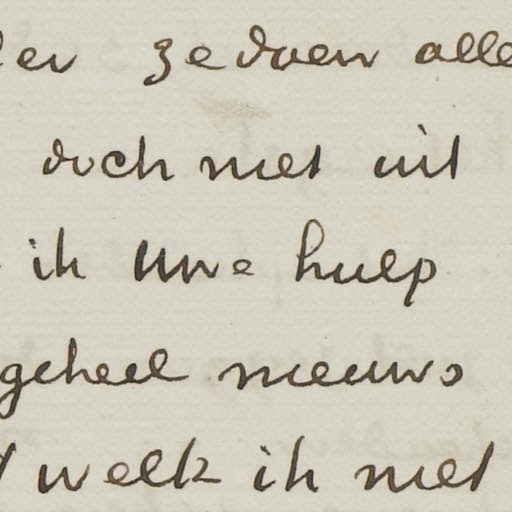 ze doen alle
doch niet uit
ik Uwe hulp
geheel nieuws
welk ik niet